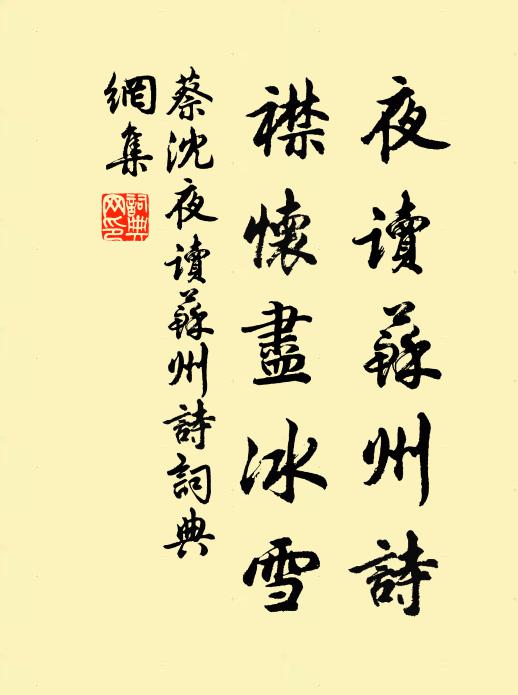 夜讀蘇州詩
襟懷盡冰雪
蔡沈夜讀蘇州詩詞典
網集
詞典
网印